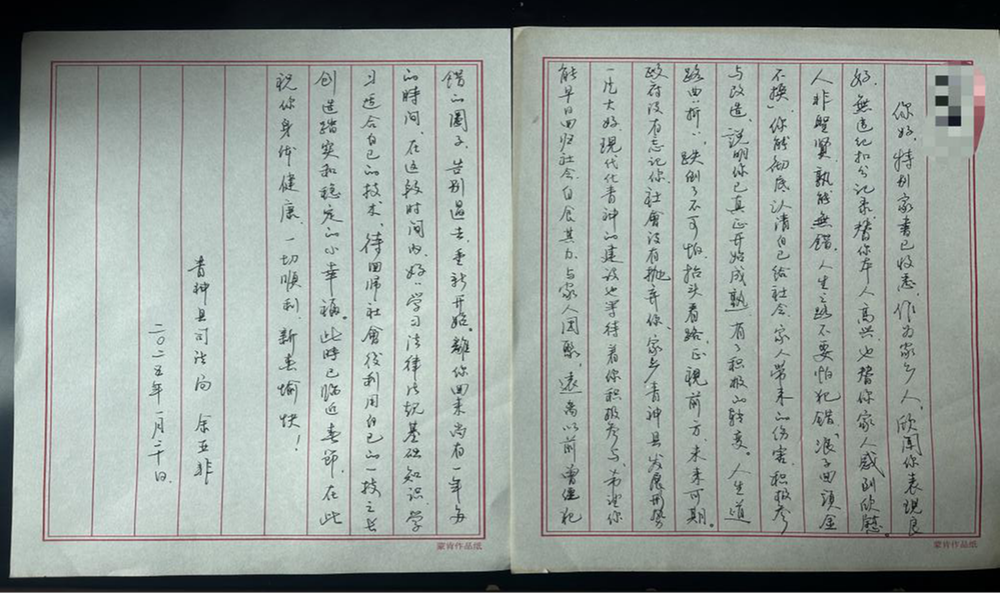 你好，特别家书已收悉，作为家乡人，欣闻你表现良
好，無违纪扣分记录，替你本人高兴，也替你家人感到欣慰。
人非聖賢，孰能無错，人生之路不要怕犯错，“浪子回頭金
不换”，你能彻底认清自己给社会、家人带来的伤害，积极参
与改造，说明你已真正开始成熟，有了积极的转变。人生道
路曲曲折折，跌倒了不可怕，抬头看路，正視前方，未来可期。
政府没有忘记你，社會没有抛弃你，家乡青神县发展形势
一片大好，现代化青神的建设也等待着你积极参与，希望你
能早日回归社会，自食其力，与家人团聚，遠离以前曾经犯
错的圈子，告别過去，重新开始。離你回来尚有一年多
的時间，在这段时间内，好好学习法律法规基础知识，学
习适合自己的技术，待回归社會後利用自己的一技之长
创造踏实和稳定的小幸福。此時已臨近春節，在此
祝你身体健康，一切順利，新春愉快！
青神县司法局 余亚非
二〇二五年一月二十日
蒙肯作品纸
蒙肯作品纸